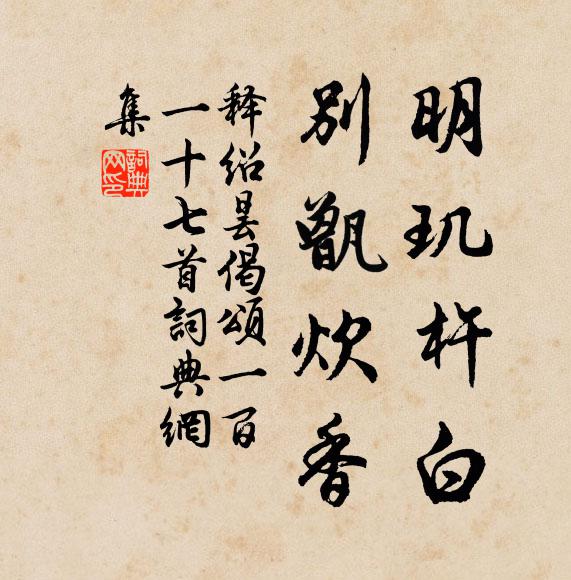 明玑杵白
别甑炊香
释绍昙偈颂一百
一十七首詞典網
集
詞典
网印